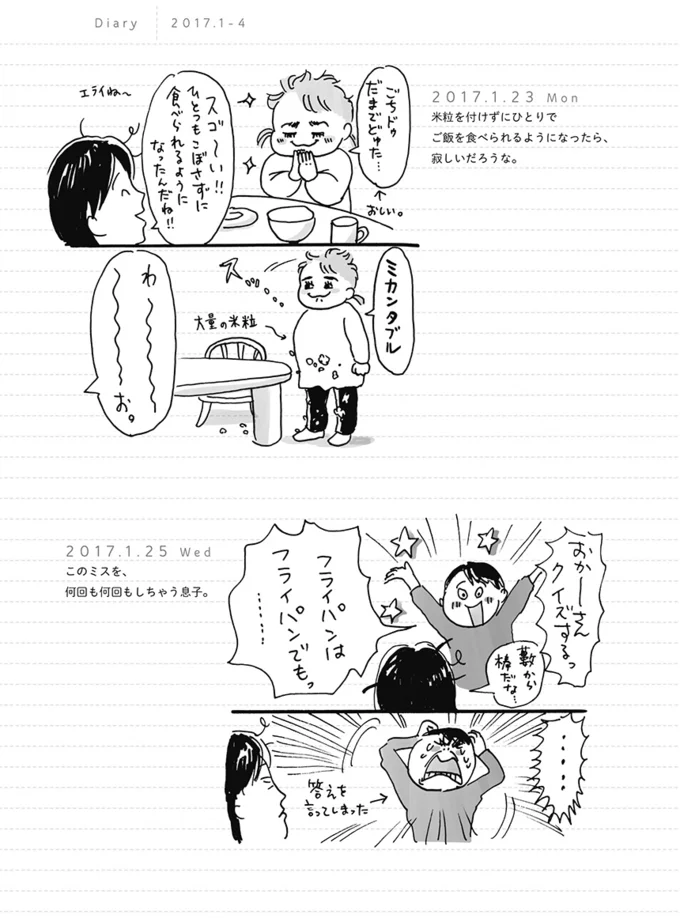 Diary 2017.1-4
2017.1.23 Mon
米粒を付けずにひとりで
ご飯を食べられるようになったら、
寂しいだろうな。
ごちドゥ
だまでどゅた…
↑
おしい。
スゴ〜い!!
ひとつもこぼさずに
食べられるように
なったんだね!!
エライね〜
ミカンタブル
ス…
大量の米粒
わ〜〜〜〜お。
2017.1.25 Wed
このミスを、
何回も何回もしちゃう息子。
おかーさん
クイズするっ
藪から
棒だな…
フライパンは
フライパンでもっ
………
……
答えを
言ってしまった